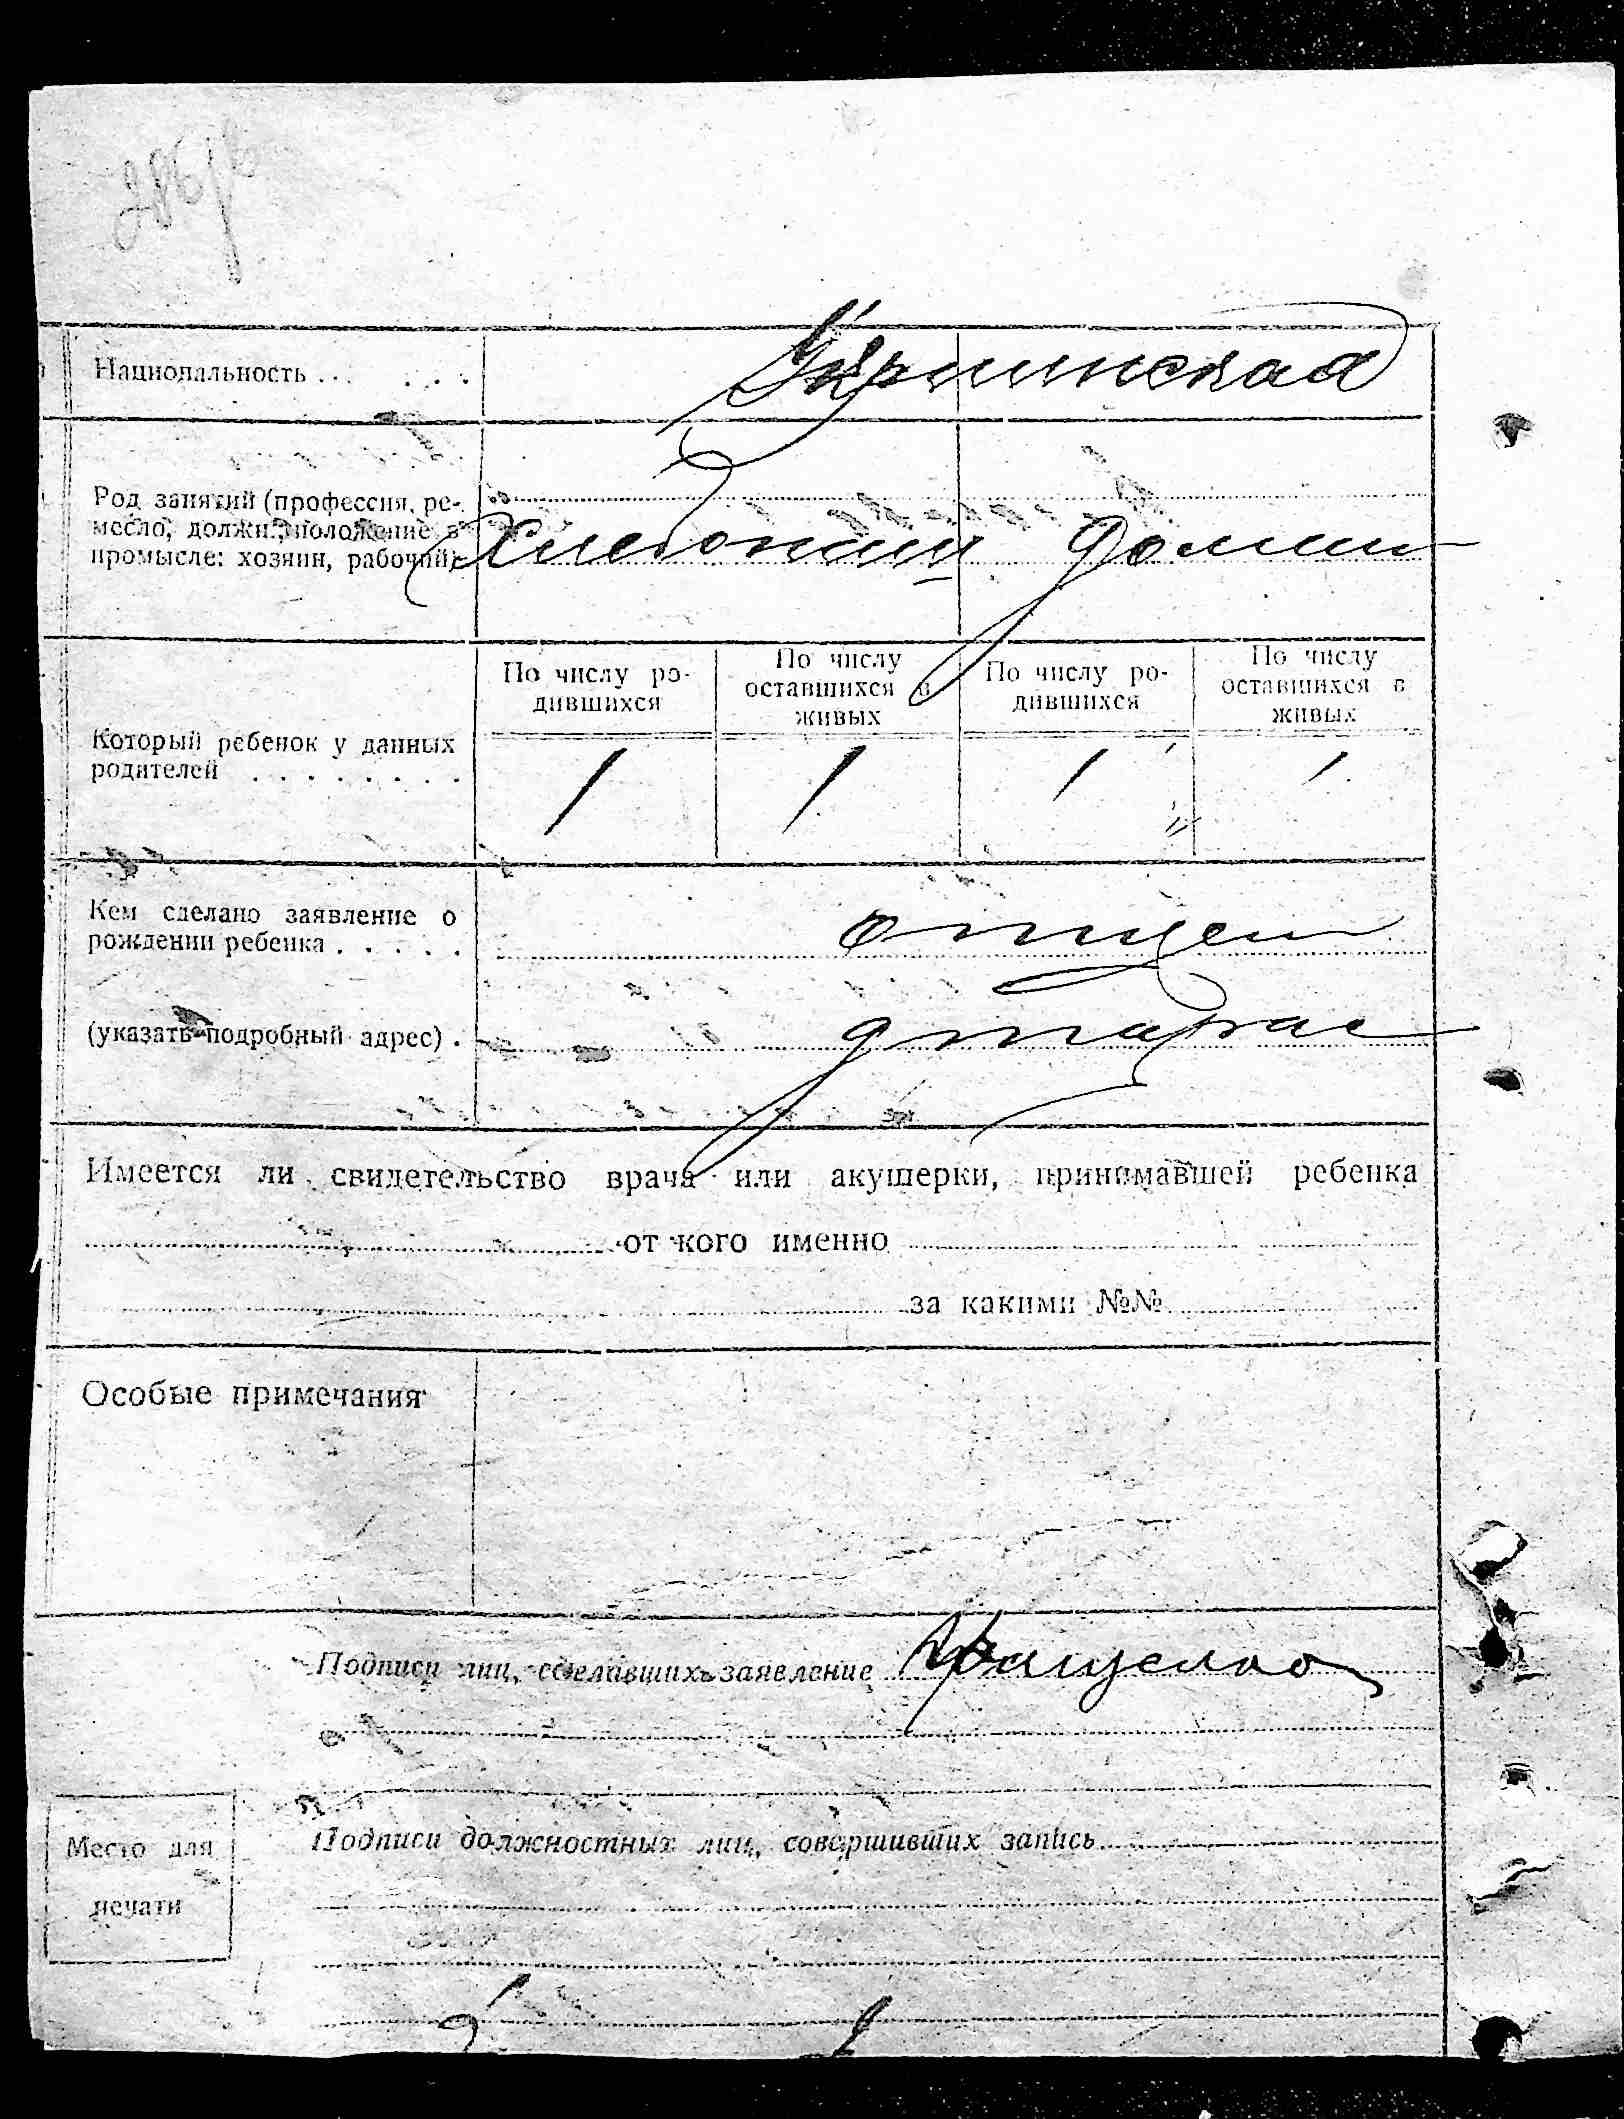 Национальность . . . . . .
Укриинская
Род занятий (профессия, ре-
месло, должн., положение в
промысле: хозяин, рабочий)
По числу ро-
дившихся
По числу
оставшихся в
живых
По числу ро-
дившихся
По числу
оставшихся в
живых
Который ребенок у данных
родителей . . . . . . . .
1 1 1 1
Кем сделано заявление о
рождении ребенка . . . . .
отцем
(указать подробный адрес) .
Имеется ли свидетельство врача или акушерки, принимавшей ребенка
от кого именно
за какими №№
Особые примечания
Подписи лиц, сделавших заявление
Подписи должностных лиц, совершивших запись
Место для
печати